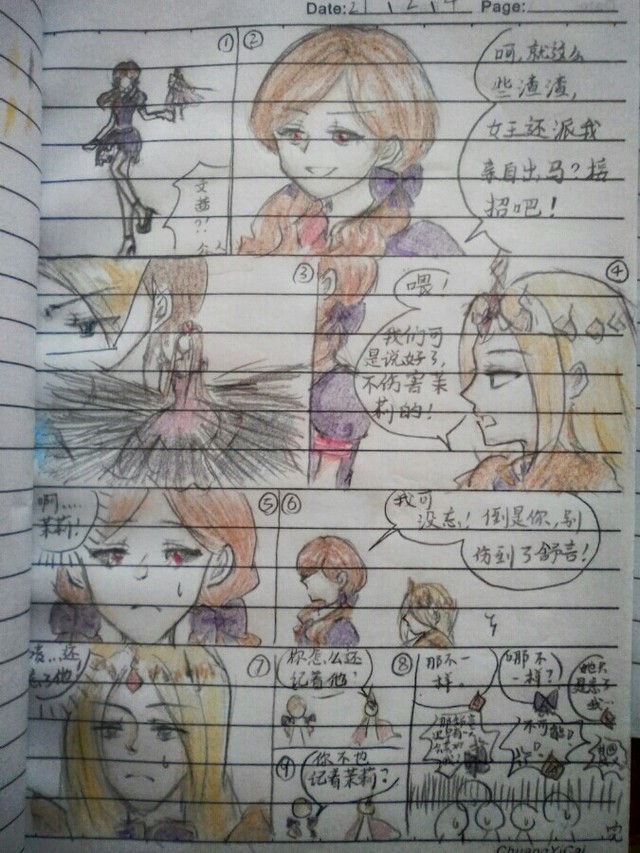 Date:
Page:
①
②
文茜
?!
呵,就这么
些渣渣,
女王还派我
亲自出马?接
招吧!
③
④
喂!
我们可
是说好了,
不伤害茉
莉的!
⑤
啊……
茉莉!
⑥
我可
没忘!倒是你,别
伤到了舒言!
⑦
还
忘了他
你怎么还
记着他?
⑧
那不一
样。
哪不
一样?
⑨
你不也
记着茉莉?
完
ChuangYiCai